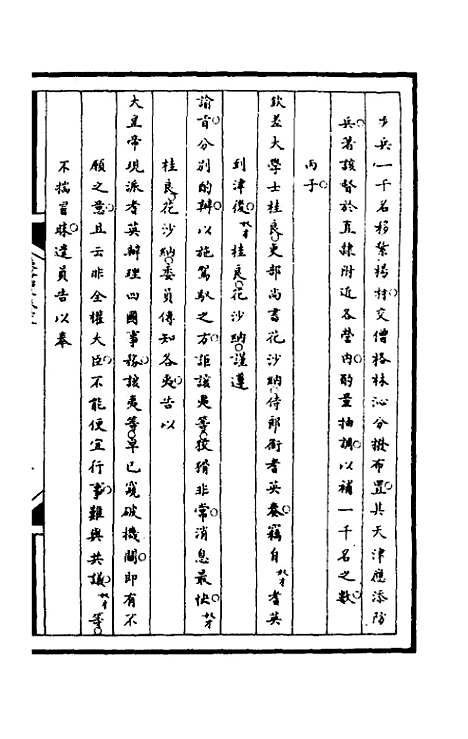 步兵一千名移紮楊村交僧格林沁分撥布置其天津應添防
兵著該督於直隸附近各營內酌量抽調以補一千名之數
丙子
欽差大學士桂良吏部尚書花沙納侍郎銜耆英奏竊自奴才耆英
到津後奴才桂良花沙納謹遵
諭旨分別酌辦以施駕馭之方詎該夷等狡猾非常消息最快奴才
桂良花沙納委員傳知各夷告以
大皇帝現派耆英辦理四國事務該夷等早已窺破機關即有不
願之意且云非全權大臣不能便宜行事難與共議奴才等
不揣冒昧遣員告以奉